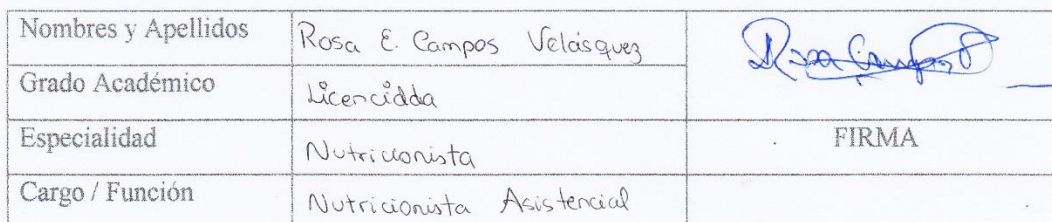 Nombres y Apellidos Rosa E. Campos Velásquez
Rosa Campos
Grado Académico Licencidda
Especialidad Nutricionista FIRMA
Cargo / Función Nutricionista Asistencial